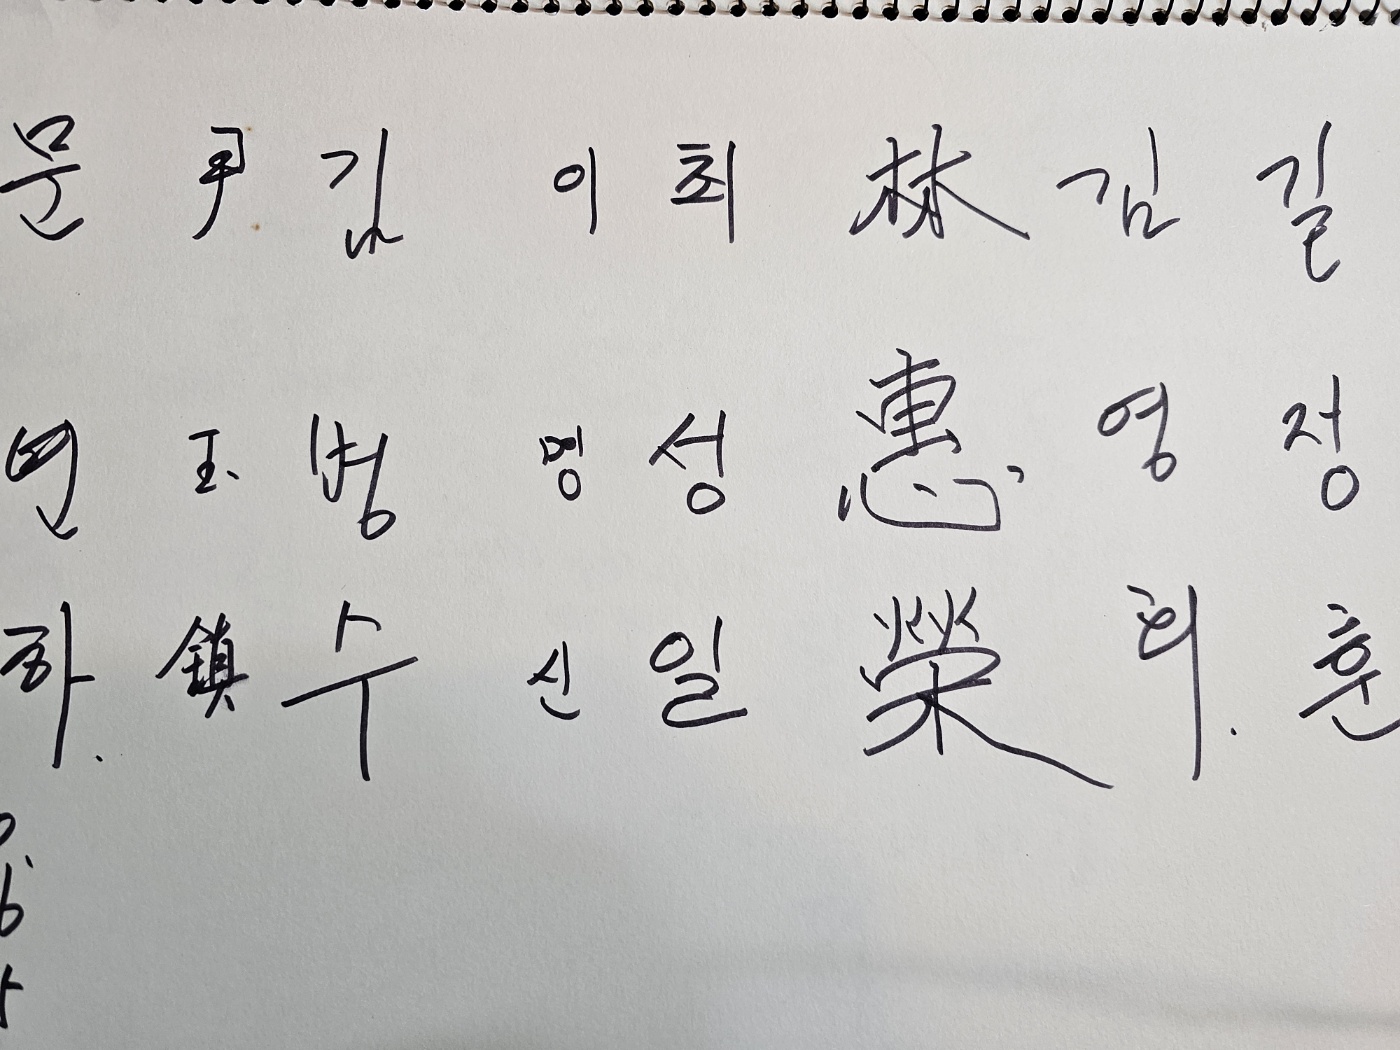 길정훈
김영희.
林惠榮
최성일
이명신
김범수
尹玉鎮
문연하.